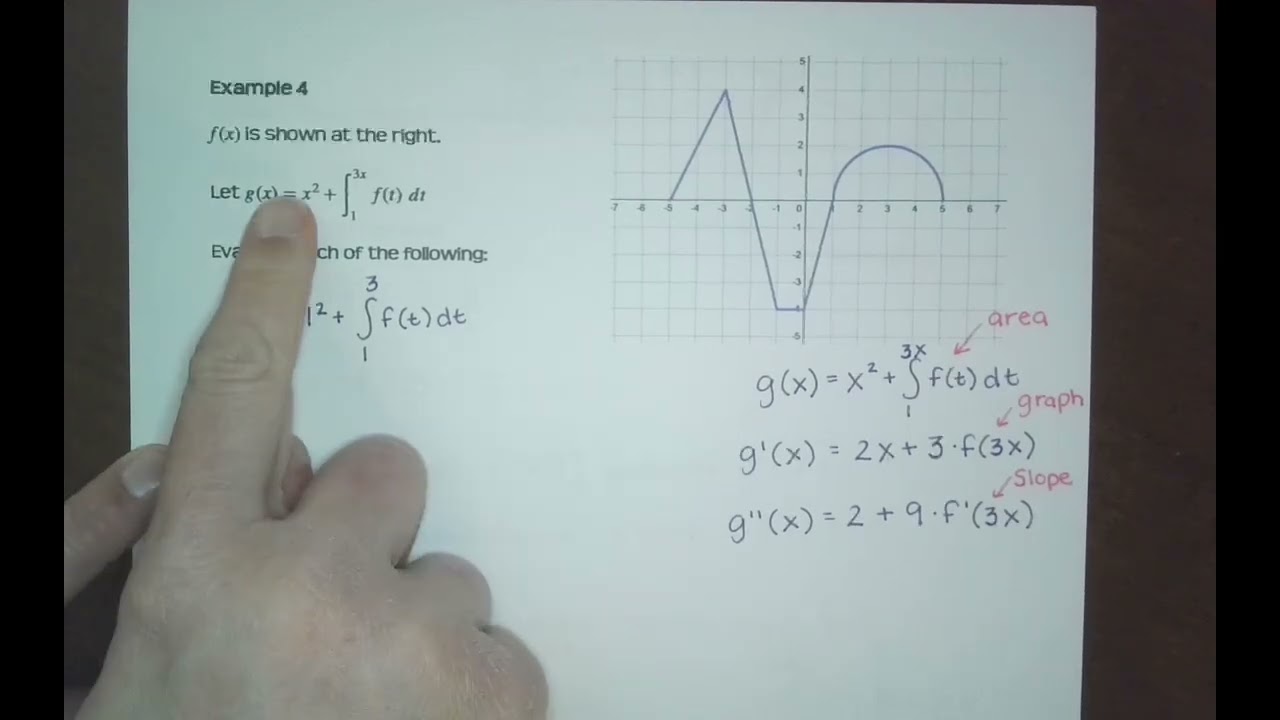 Example 4
f(x) is shown at the right.
Let g(x) = x² + ∫₁³ˣ f(t) dt
of the following:
1² + ∫₁³ f(t) dt
5
4
3
2
1
-7 -6 -5 -4 -3 -2 -1 0 2 3 4 5 6 7
-1
-2
-3
-5
area
g(x) = x² + ∫₁³ˣ f(t) dt
graph
g'(x) = 2x + 3·f(3x)
Slope
g''(x) = 2 + 9·f'(3x)